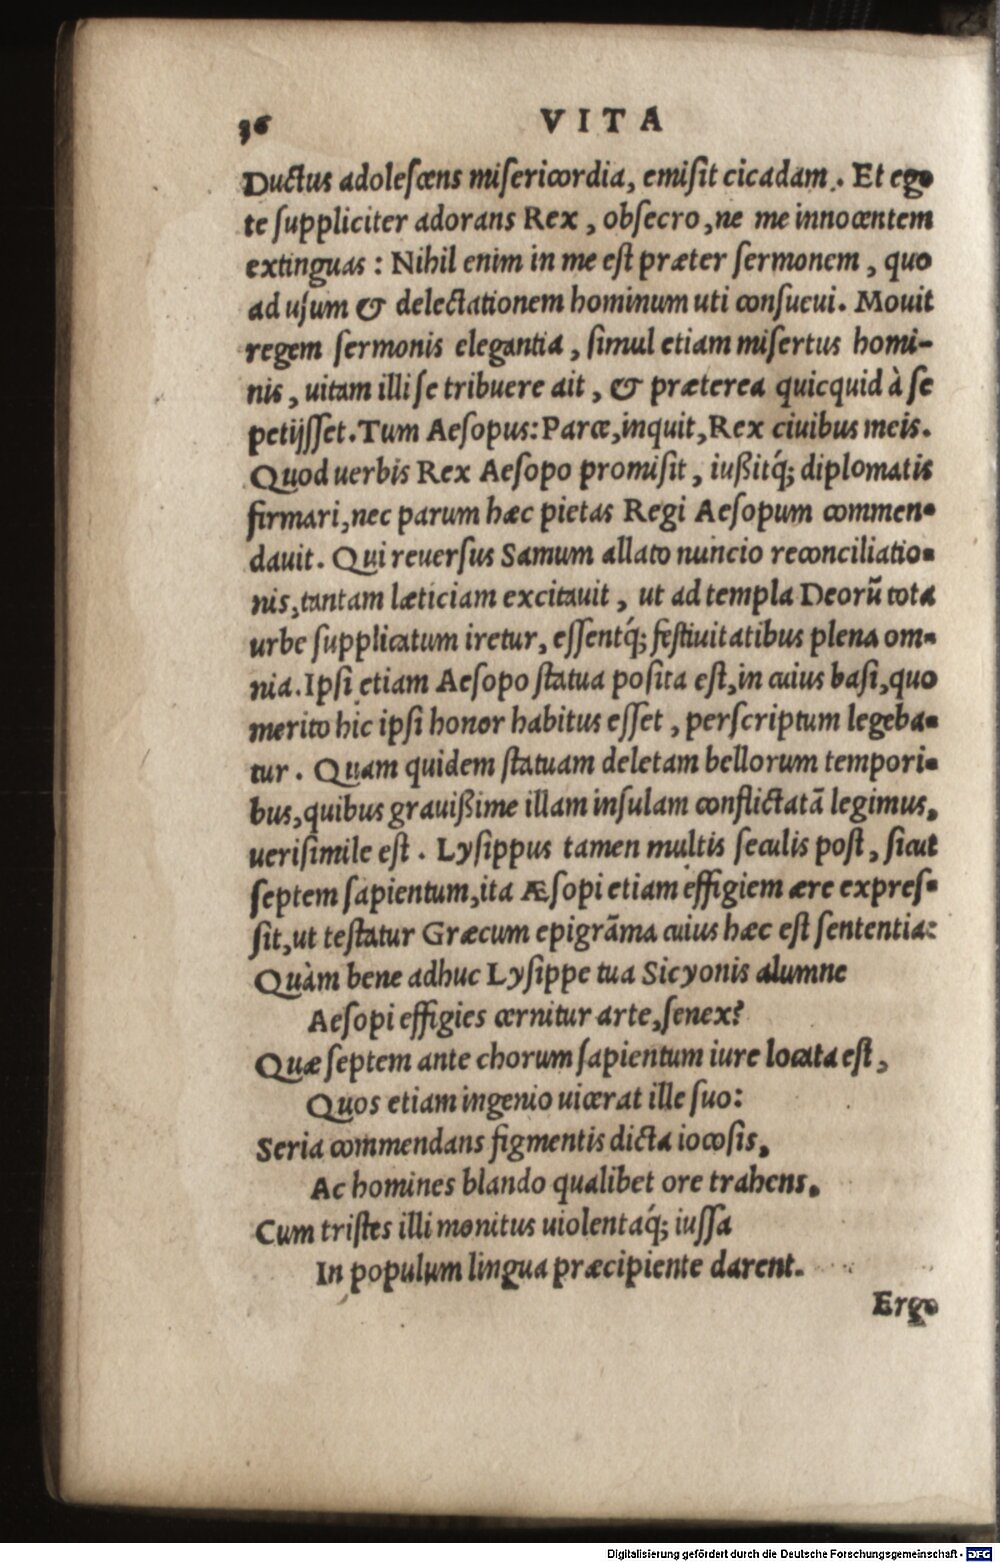 36 VITA
Ductus adoleſcens miſericordia, emiſit cicadam. Et ego
te ſuppliciter adorans Rex, obſecro, ne me innocentem
extinguas: Nihil enim in me eſt præter ſermonem, quo
ad uſum & delectationem hominum uti conſueui. Mouit
regem ſermonis elegantia, ſimul etiam miſertus homi-
nis, uitam illi ſe tribuere ait, & præterea quicquid à ſe
petijſſet. Tum Aeſopus: Parce, inquit, Rex ciuibus meis.
Quod uerbis Rex Aeſopo promiſit, iußitq́; diplomatis
firmari, nec parum hæc pietas Regi Aeſopum commen-
dauit. Qui reuerſus Samum allato nuncio reconciliatio-
nis, tantam læticiam excitauit, ut ad templa Deorũ tota
urbe ſupplicatum iretur, eſſentq́; feſtiuitatibus plena om-
nia. Ipſi etiam Aeſopo ſtatua poſita eſt, in cuius baſi, quo
merito hic ipſi honor habitus eſſet, perſcriptum legeba-
tur. Quam quidem ſtatuam deletam bellorum tempori-
bus, quibus grauißime illam inſulam conflictatã legimus,
ueriſimile eſt. Lyſippus tamen multis ſeculis poſt, ſicut
ſeptem ſapientum, ita Æſopi etiam effigiem ære expreſ-
ſit, ut teſtatur Græcum epigrãma cuius hæc eſt ſententia:
Quàm bene adhuc Lyſippe tua Sicyonis alumne
Aeſopi effigies cernitur arte, ſenex?
Quæ ſeptem ante chorum ſapientum iure locata eſt,
Quos etiam ingenio uicerat ille ſuo:
Seria commendans figmentis dicta iocoſis,
Ac homines blando qualibet ore trahens,
Cum triſtes illi monitus uiolentaq́; iuſſa
In populum lingua præcipiente darent.
Ergo
Digitalisierung gefördert durch die Deutsche Forschungsgemeinschaft - DFG